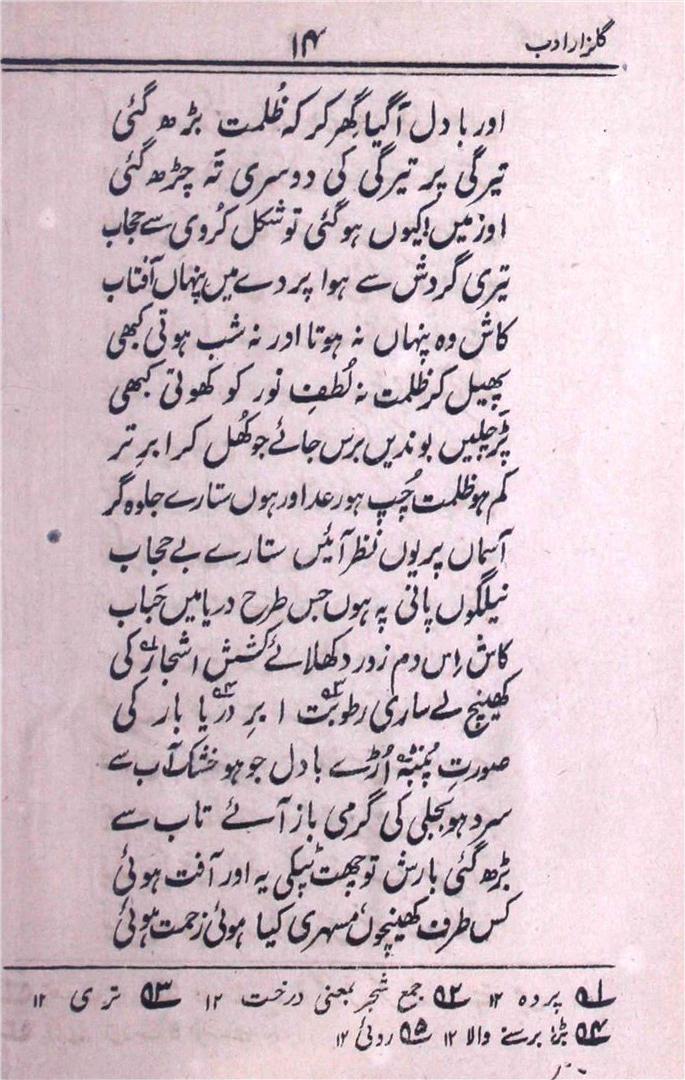 گلزار ادب
۱۴
اور بادل آگیا گِھر کر کہ ظُلمت بڑھ گئی
تیرگی پر تیرگی کی دوسری تَہ چڑھ گئی
او زمیں! کیوں ہو گئی تو شکل کُروی سے حجاب
تیری گردش سے ہوا پردے میں پنہاں آفتاب
کاش وہ پنہاں نہ ہوتا اور نہ شب ہوتی کبھی
پھیل کر ظلمت نہ لُطفِ نور کو کھوتی کبھی
پڑ چلیں بوندیں برس جائے جو کُھل کر ابرِ تر
کم ہو ظلمت چُپ ہو رعد اور ہوں ستارے جلوہ گر
آسماں پر یوں نظر آئیں ستارے بے حجاب
نیلگوں پانی پہ ہوں جس طرح دریا میں حَباب
کاش اِس دم زور دکھلائے کشش اشجار۲؎ کی
کھینچ لے ساری رطوبت۳؎ ابرِ دریا۴؎ بار کی
صورتِ پُنبہ۵؎ اُڑے بادل جو ہو خشک آب سے
سرد ہو بجلی کی گرمی باز آئے تاب سے
بڑھ گئی بارش تو چھت ٹپکی یہ اور آفت ہوئی
کس طرف کھینچوں مسہری کیا ہوئی زحمت ہوئی
۱؎ پردہ ۱۲ ۲؎ جمع شجر بمعنی درخت ۱۲ ۳؎ تری ۱۲
۴؎ بڑا برسنے والا ۱۲ ۵؎ روئی ۱۲